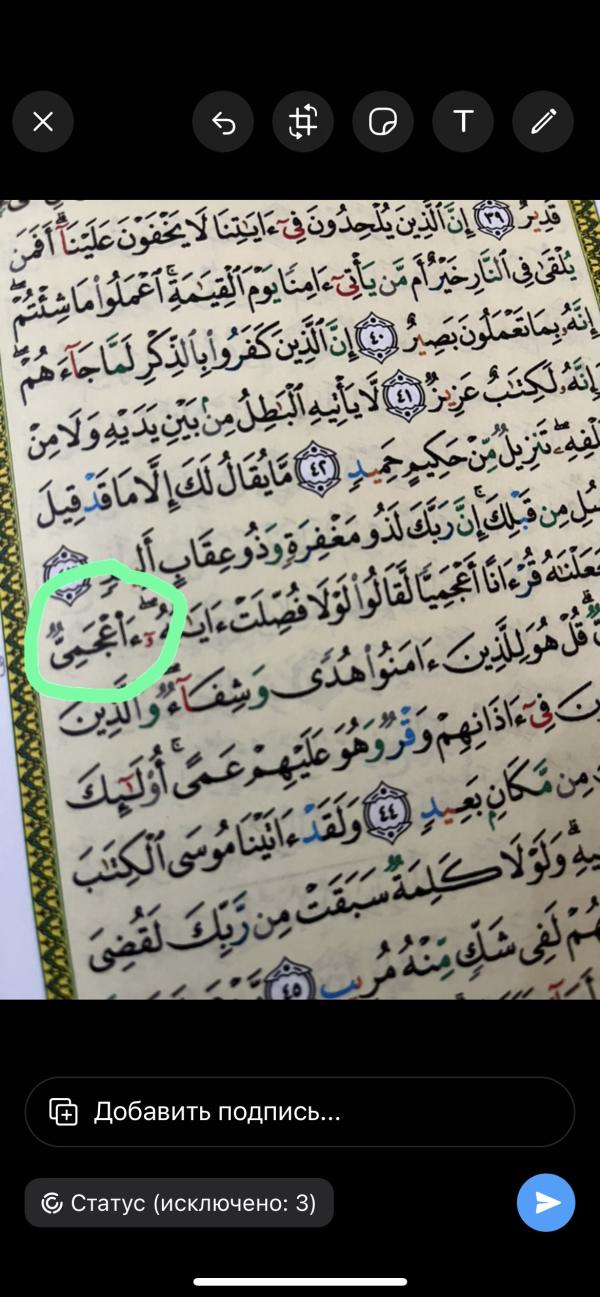 T
قَدِيرٌ ٣٩ إِنَّ ٱلَّذِينَ يُلْحِدُونَ فِىٓ ءَايَـٰتِنَا لَا يَخْفَوْنَ عَلَيْنَآ ۗ أَفَمَن
يُلْقَىٰ فِى ٱلنَّارِ خَيْرٌ أَم مَّن يَأْتِىٓ ءَامِنًا يَوْمَ ٱلْقِيَـٰمَةِ ۚ ٱعْمَلُوا۟ مَا شِئْتُمْ ۖ
إِنَّهُۥ بِمَا تَعْمَلُونَ بَصِيرٌ ٤٠ إِنَّ ٱلَّذِينَ كَفَرُوا۟ بِٱلذِّكْرِ لَمَّا جَآءَهُمْ ۖ
وَإِنَّهُۥ لَكِتَـٰبٌ عَزِيزٌ ٤١ لَّا يَأْتِيهِ ٱلْبَـٰطِلُ مِنۢ بَيْنِ يَدَيْهِ وَلَا مِنْ
خَلْفِهِۦ ۖ تَنزِيلٌ مِّنْ حَكِيمٍ حَمِيدٍ ٤٢ مَّا يُقَالُ لَكَ إِلَّا مَا قَدْ قِيلَ
لِلرُّسُلِ مِن قَبْلِكَ ۚ إِنَّ رَبَّكَ لَذُو مَغْفِرَةٍ وَذُو عِقَابٍ أَلِيمٍ
جَعَلْنَـٰهُ قُرْءَانًا أَعْجَمِيًّا لَّقَالُوا۟ لَوْلَا فُصِّلَتْ ءَايَـٰتُهُۥٓ ۖ ءَا۬عْجَمِىٌّ
قُلْ هُوَ لِلَّذِينَ ءَامَنُوا۟ هُدًى وَشِفَآءٌ ۖ وَٱلَّذِينَ
فِىٓ ءَاذَانِهِمْ وَقْرٌ وَهُوَ عَلَيْهِمْ عَمًى ۚ أُو۟لَـٰٓئِكَ
مِن مَّكَانٍۭ بَعِيدٍ ٤٤ وَلَقَدْ ءَاتَيْنَا مُوسَى ٱلْكِتَـٰبَ
فِيهِ ۗ وَلَوْلَا كَلِمَةٌ سَبَقَتْ مِن رَّبِّكَ لَقُضِىَ
لَفِى شَكٍّ مِّنْهُ مُرِيبٍ ٤٥
Добавить подпись...
Статус (исключено: 3)